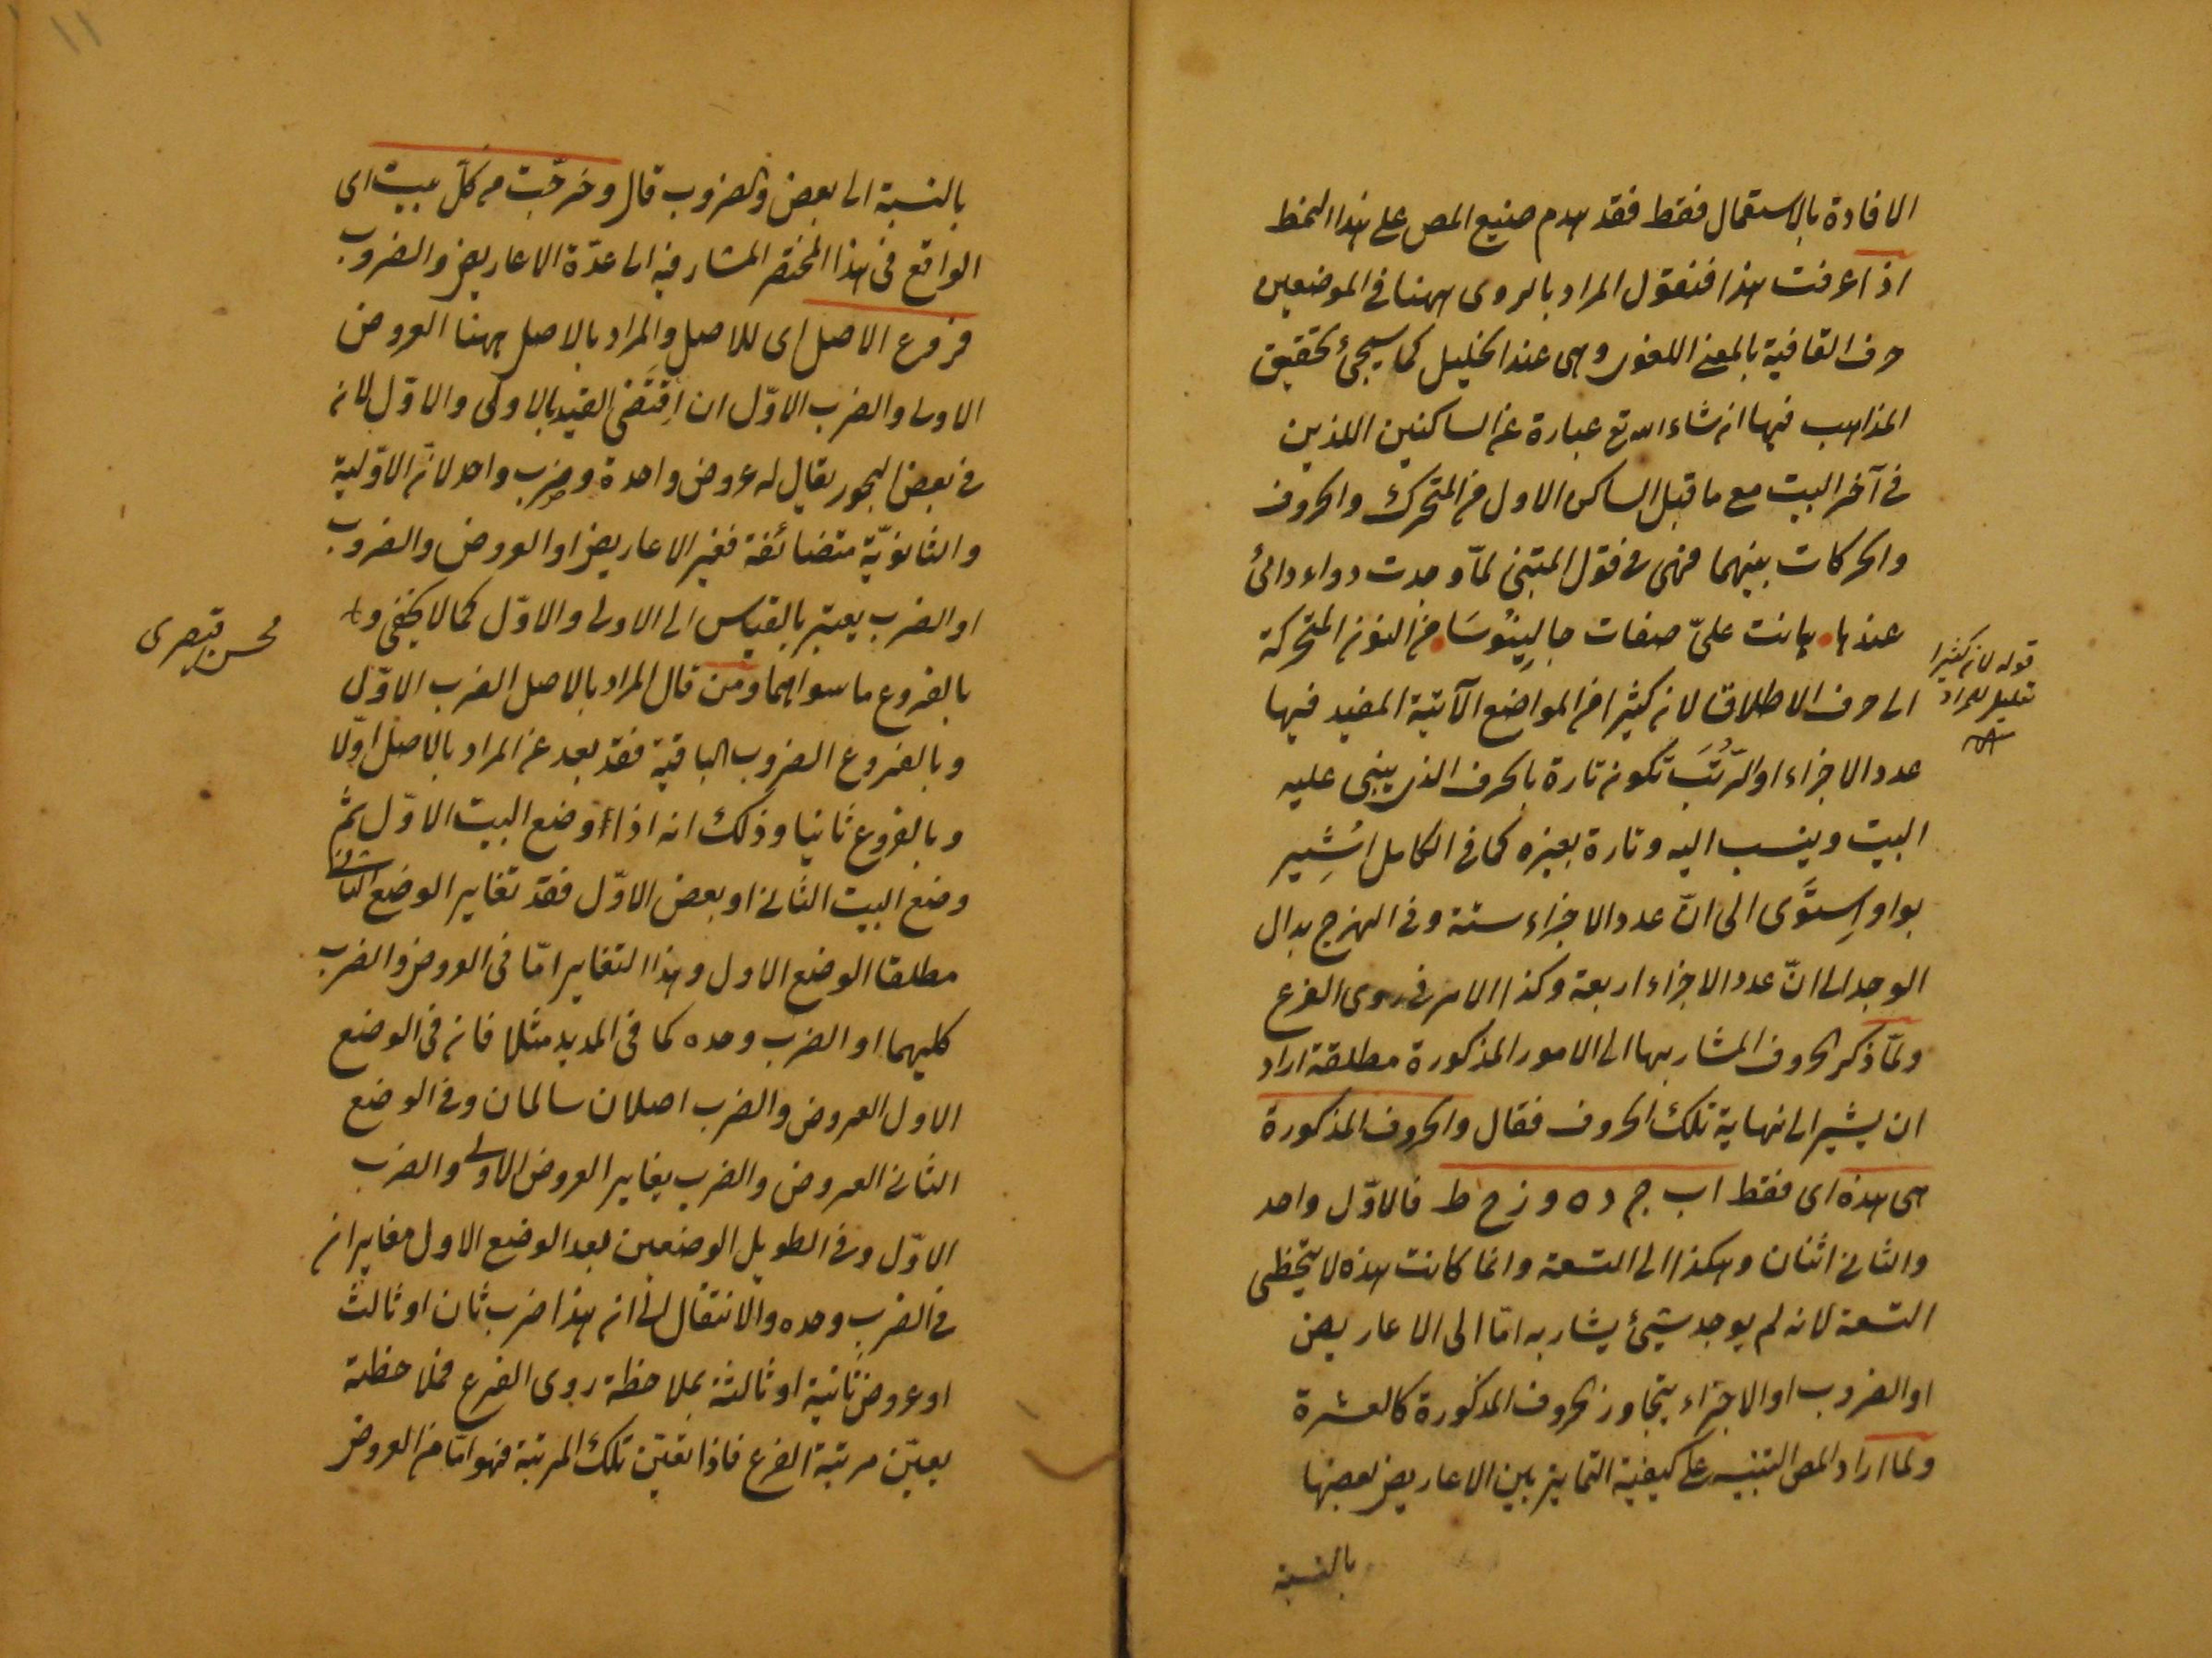 الافادة بالاستعمال فقط فقد هدم صنيع المص على هذا النمط
اذا عرفت هذا فنقول المراد بالروى ههنا فى الموضعين
حرف القافية بالمعنى اللغوى وهى عند الخليل كما سيجئ تحقيق
المذاهب فيها ان شاء الله تع عبارة عن الساكنين اللذين
فى آخر البيت مع ما قبل الساكن الاول من المتحرك والحروف
والحركات بينهما فهى فى قول المتنبى لمّا وجدت دواء دائى
عندها هانت علىّ صفات جالِينُوسَا من النون المتحركة
الى حرف الاطلاق لان كثيرا من المواضع الآتية المفيد فيها
عدد الاجزاء او الرُّتَب تكون تارة بالحرف الذى يبنى عليه
البيت وينسب اليه وتارة بغيره كما فى الكامل اُشِير
بواو اِستَوى الى انّ عدد الاجزاء ستة وفى الهزج بدال
الوجد الى انّ عدد الاجزاء اربعة وكذا الامر فى روى الفرع
ولمّا ذكر الحروف المشار بها الى الامور المذكورة مطلقة اراد
ان يشير الى نهاية تلك الحروف فقال والحروف المذكورة
هى هذه اى فقط اب ج د ه و ز ح ط فالاوّل واحد
والثانى اثنان وهكذا الى التسعة وانما كانت هذه لا تتخطى
التسعة لانه لم يوجد شئ يشار به امّا الى الاعاريض
او الضروب او الاجزاء يتجاوز الحروف المذكورة كالعشرة
ولما اراد المص التنبيه على كيفية التمايز بين الاعاريض بعضها
بالنسبة
قوله لان كثيرا
تعليل للمراد
بالنسبة الى بعض والضروب قال وخرّجت من كلّ بيت اى
الواقع فى هذا المختصر المشار فيه الى عدّة الاعاريض والضروب
فروع الاصل اى للاصل والمراد بالاصل ههنا العروض
الاولى والضرب الاوّل ان اِقتَضى القيد بالاولى والاوّل لانه
فى بعض البحور يقال له عروض واحدة وضرب واحد لانّ الاوّلية
والثانويّة متضائفة فغير الاعاريض او العروض والضروب
او الضرب يعتبر بالقياس الى الاولى والاوّل كما لا يخفى و
بالفروع ما سواهما ومن قال المراد بالاصل الضرب الاوّل
وبالفروع الضروب الباقية فقد بعد عن المراد بالاصل اوّلا
وبالفروع ثانيا وذلك انه اذا وضع البيت الاوّل ثمّ
وضع البيت الثانى او بعض الاوّل فقد تغاير الوضع الثانى
مطلقا الوضع الاول وهذا التغاير امّا فى العروض والضرب
كليهما او الضرب وحده كما فى المديد مثلا فانه فى الوضع
الاول العروض والضرب اصلان سالمان وفى الوضع
الثانى العروض والضرب يغاير العروض الاولى والضرب
الاوّل وفى الطويل الوضعين بعد الوضع الاول مغايران
فى الضرب وحده والانتقال الى ان هذا ضرب ثان او ثالث
او عروض ثانية او ثالثة بملاحظة روى الفرع فملاحظته
يعيّن مرتبة الفرع فاذا تعيّن تلك المرتبة فهو امّا من العروض
محسن قيصرى
١١